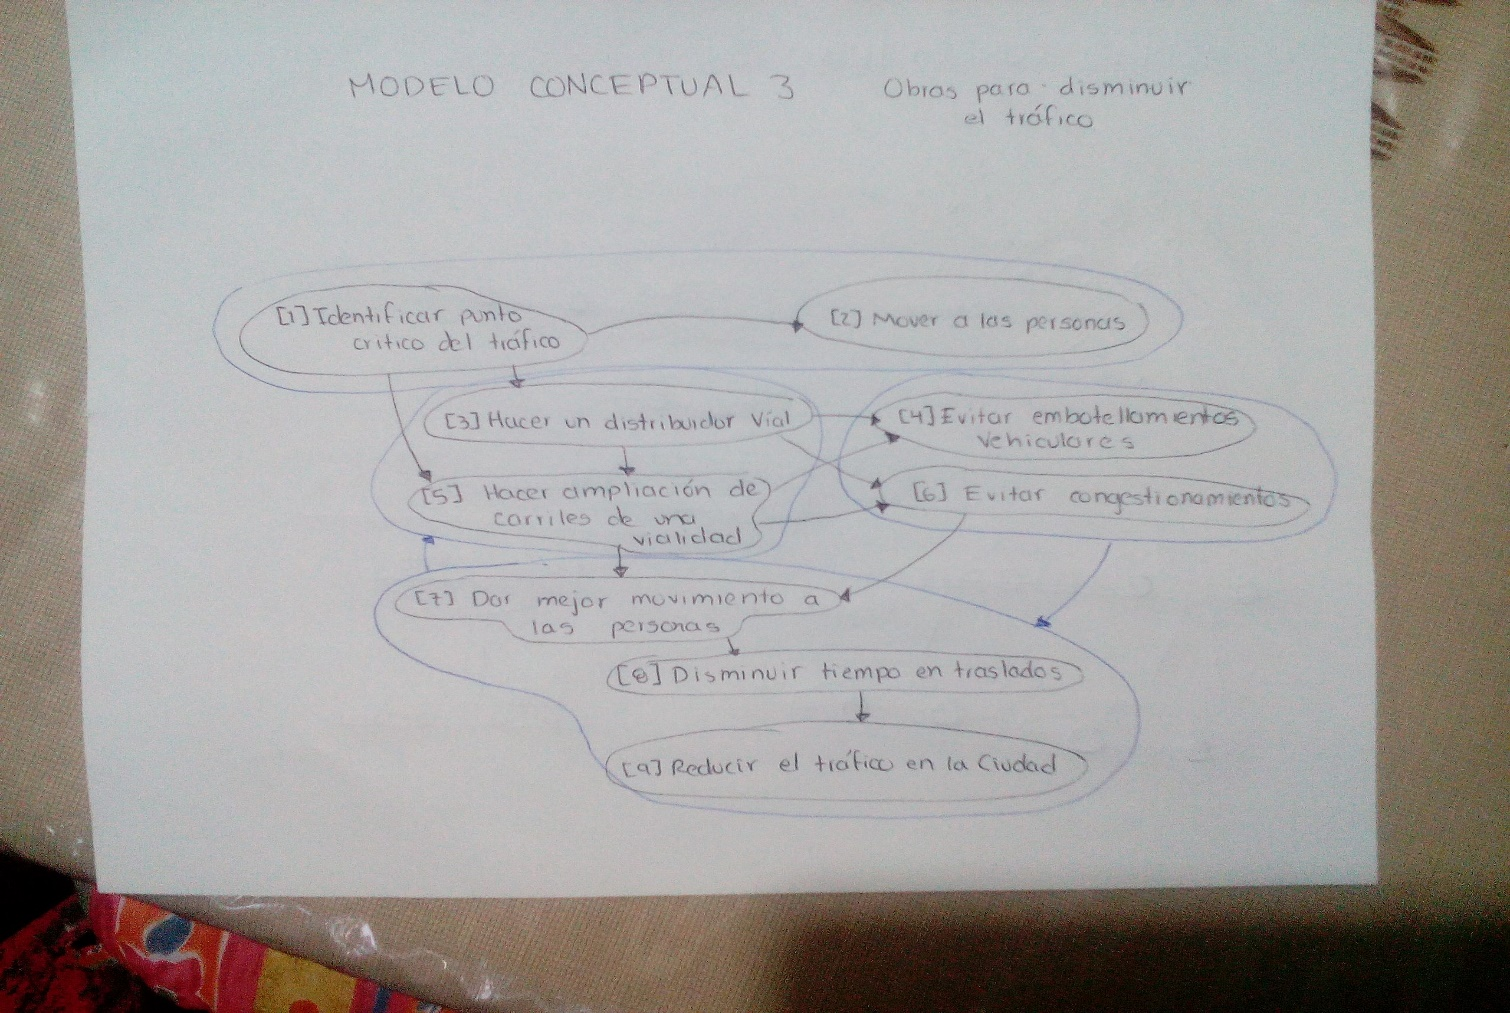 MODELO CONCEPTUAL 3
Obras para disminuir
el tráfico
[1] Identificar punto
crítico del tráfico
[2] Mover a las personas
[3] Hacer un distribuidor Vial
[4] Evitar embotellamientos
vehiculares
[5] Hacer ampliación de
carriles de una
vialidad
[6] Evitar congestionamientos
[7] Dar mejor movimiento a
las personas
[8] Disminuir tiempo en traslados
[9] Reducir el tráfico en la Ciudad